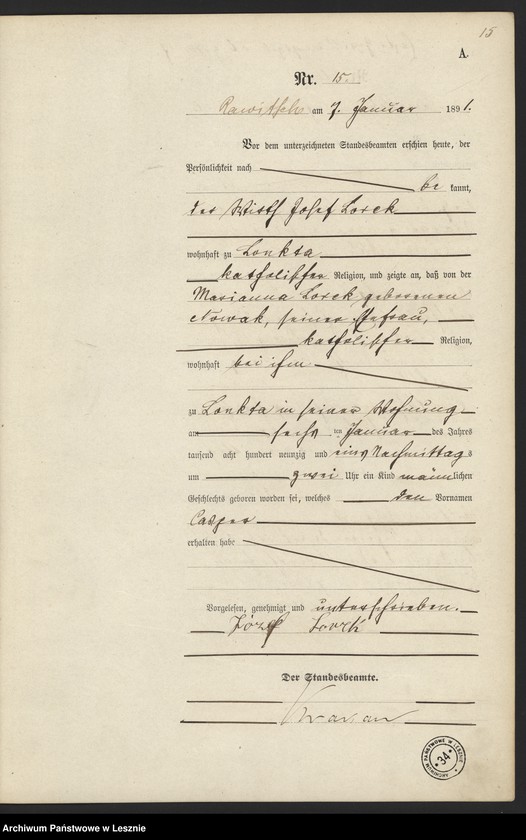 15
A.
Nr. 15.
Rawitsch am 7. Januar 1891.
Vor dem unterzeichneten Standesbeamten erschien heute, der
Persönlichkeit nach
be kannt,
der Wirth Josef Lorek
wohnhaft zu Lonkta
katholischer Religion, und zeigte an, daß von der
Marianna Lorek geborenen
Nowak, seiner Ehefrau,
katholischer Religion,
wohnhaft bei ihm
zu Lonkta in seiner Wohnung
am sechs ten Januar des Jahres
tausend acht hundert neunzig und eins Nachmittags
um zwei Uhr ein Kind männlichen
Geschlechts geboren worden sei, welches den Vornamen
Casper
erhalten habe
Vorgelesen, genehmigt und unterschrieben.
Józef
Der Standesbeamte.
ARCHIWUM PAŃSTWOWE W LESZNIE
34
Archiwum Państwowe w Lesznie